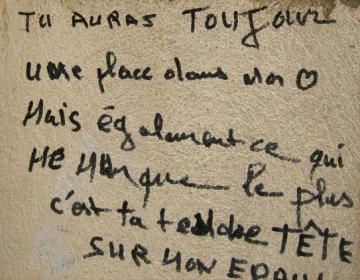 TU AURAS TOUJOUR
une place dans mon ♡
Mais également ce qui
ME MANque le plus
c'est ta tendre TÊTE
SUR MON EPAU